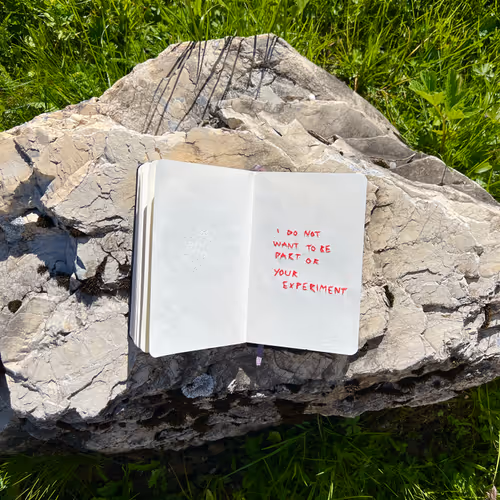 I DO NOT
WANT TO BE
PART OF
YOUR
EXPERIMENT